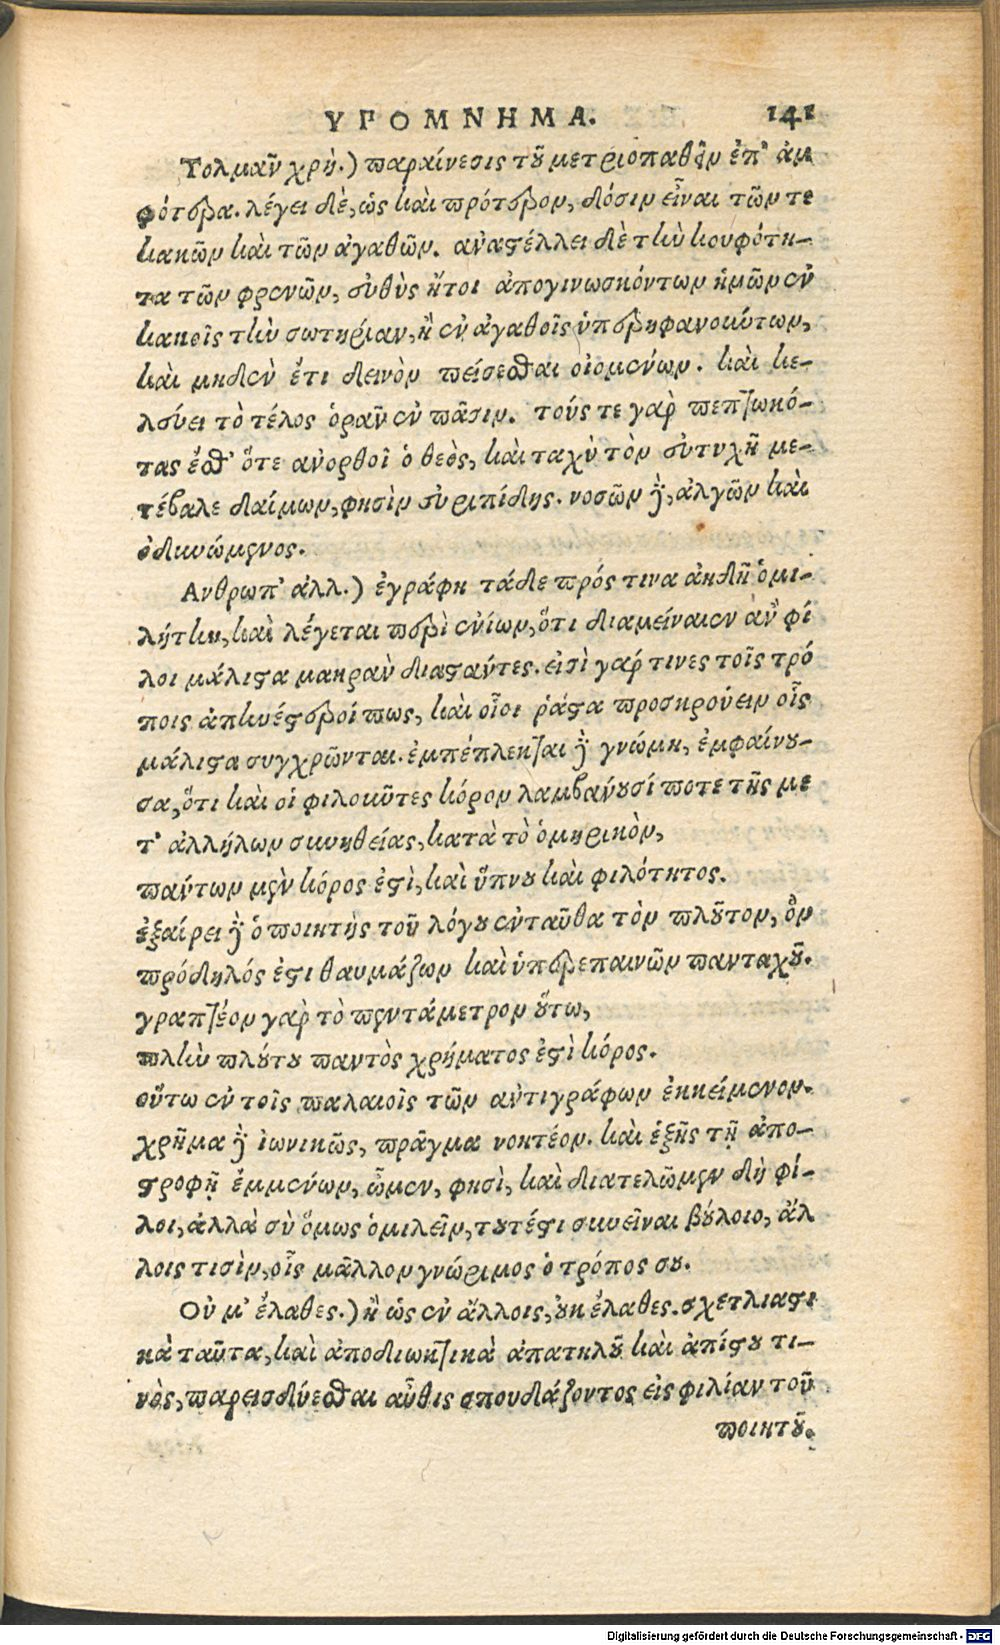 ΥΠΟΜΝΗΜΑ. 141
Τολμᾶν χρή.) παραίνεσις τοῦ μετριοπαθεῖν ἐπ' ἀμ
φότερα. λέγει δὲ, ὡς καὶ πρότερον, δόσιν εἶναι τῶν τε
κακῶν καὶ τῶν ἀγαθῶν. ἀναστέλλει δὲ τὴν κουφότη-
τα τῶν φρενῶν, εὐθὺς ἤτοι ἀπογινωσκόντων ἡμῶν ἐν
κακοῖς τὴν σωτηρίαν, ἢ ἐν ἀγαθοῖς ὑπερηφανούντων,
καὶ μηδὲν ἔτι δεινὸν πείσεσθαι οἰομένων. καὶ κε-
λεύει τὸ τέλος ὁρᾶν ἐν πᾶσιν. τούς τε γὰρ πεπτωκό-
τας ἔσθ' ὅτε ἀνορθοῖ ὁ θεὸς, καὶ ταχὺ τὸν εὐτυχῆ με-
τέβαλε δαίμων, φησὶν εὐριπίδης. νοσῶν γὰρ, ἀλγῶν καὶ
ὀδυνώμενος.
Ανθρωπ' ἀλλ.) ἐγράφη τάδε πρός τινα ἀηδῆ ὁμι-
λήτην, καὶ λέγεται περὶ ἐνίων, ὅτι διαμείναιεν ἀν φί
λοι μάλιστα μακρὰν διαστάντες. εἰσὶ γάρ τινες τοῖς τρό
ποις ἀπηνέστεροί πως, καὶ οἷοι ῥᾷστα προσκρούειν οἷς
μάλιστα συγχρῶνται. ἐμπέπλεκται γὰρ γνώμη, ἐμφαίνου-
σα, ὅτι καὶ οἱ φιλοῦντες κόρον λαμβάνουσί ποτε τῆς με
τ' ἀλλήλων συνηθείας, κατὰ τὸ ὁμηρικὸν,
πάντων μὲν κόρος ἐστὶ, καὶ ὕπνου καὶ φιλότητος.
ἐξαίρει γὰρ ὁ ποιητὴς τοῦ λόγου ἐνταῦθα τὸν πλοῦτον, ὃν
πρόδηλός ἐστι θαυμάζων καὶ ὑπερεπαινῶν πανταχοῦ.
γραπτέον γὰρ τὸ πεντάμετρον οὕτω,
πλὴν πλούτου παντὸς χρήματος ἐστὶ κόρος.
οὕτω ἐν τοῖς παλαιοῖς τῶν ἀντιγράφων ἐκκείμενον.
χρῆμα γὰρ ἰωνικῶς, πρᾶγμα νοητέον. καὶ ἑξῆς τῇ ἀπο-
στροφῇ ἐμμένων, ὦμεν, φησὶ, καὶ διατελῶμεν δὴ φί-
λοι, ἀλλὰ σὺ ὅμως ὁμιλεῖν, τουτέστι συνεῖναι βούλοιο, ἄλ
λοις τισὶν, οἷς μᾶλλον γνώριμος ὁ τρόπος σου.
Οὔ μ' ἔλαθες.) ἢ ὡς ἐν ἄλλοις, οὐκ ἔλαθες. σχετλιαστι
κὰ ταῦτα, καὶ ἀποδιωκτικὰ ἀπατηλοῦ καὶ ἀπίστου τι-
νὸς, παρεισδύεσθαι αὖθις σπουδάζοντος εἰς φιλίαν τοῦ
ποιητοῦ.
Digitalisierung gefördert durch die Deutsche Forschungsgemeinschaft - DFG